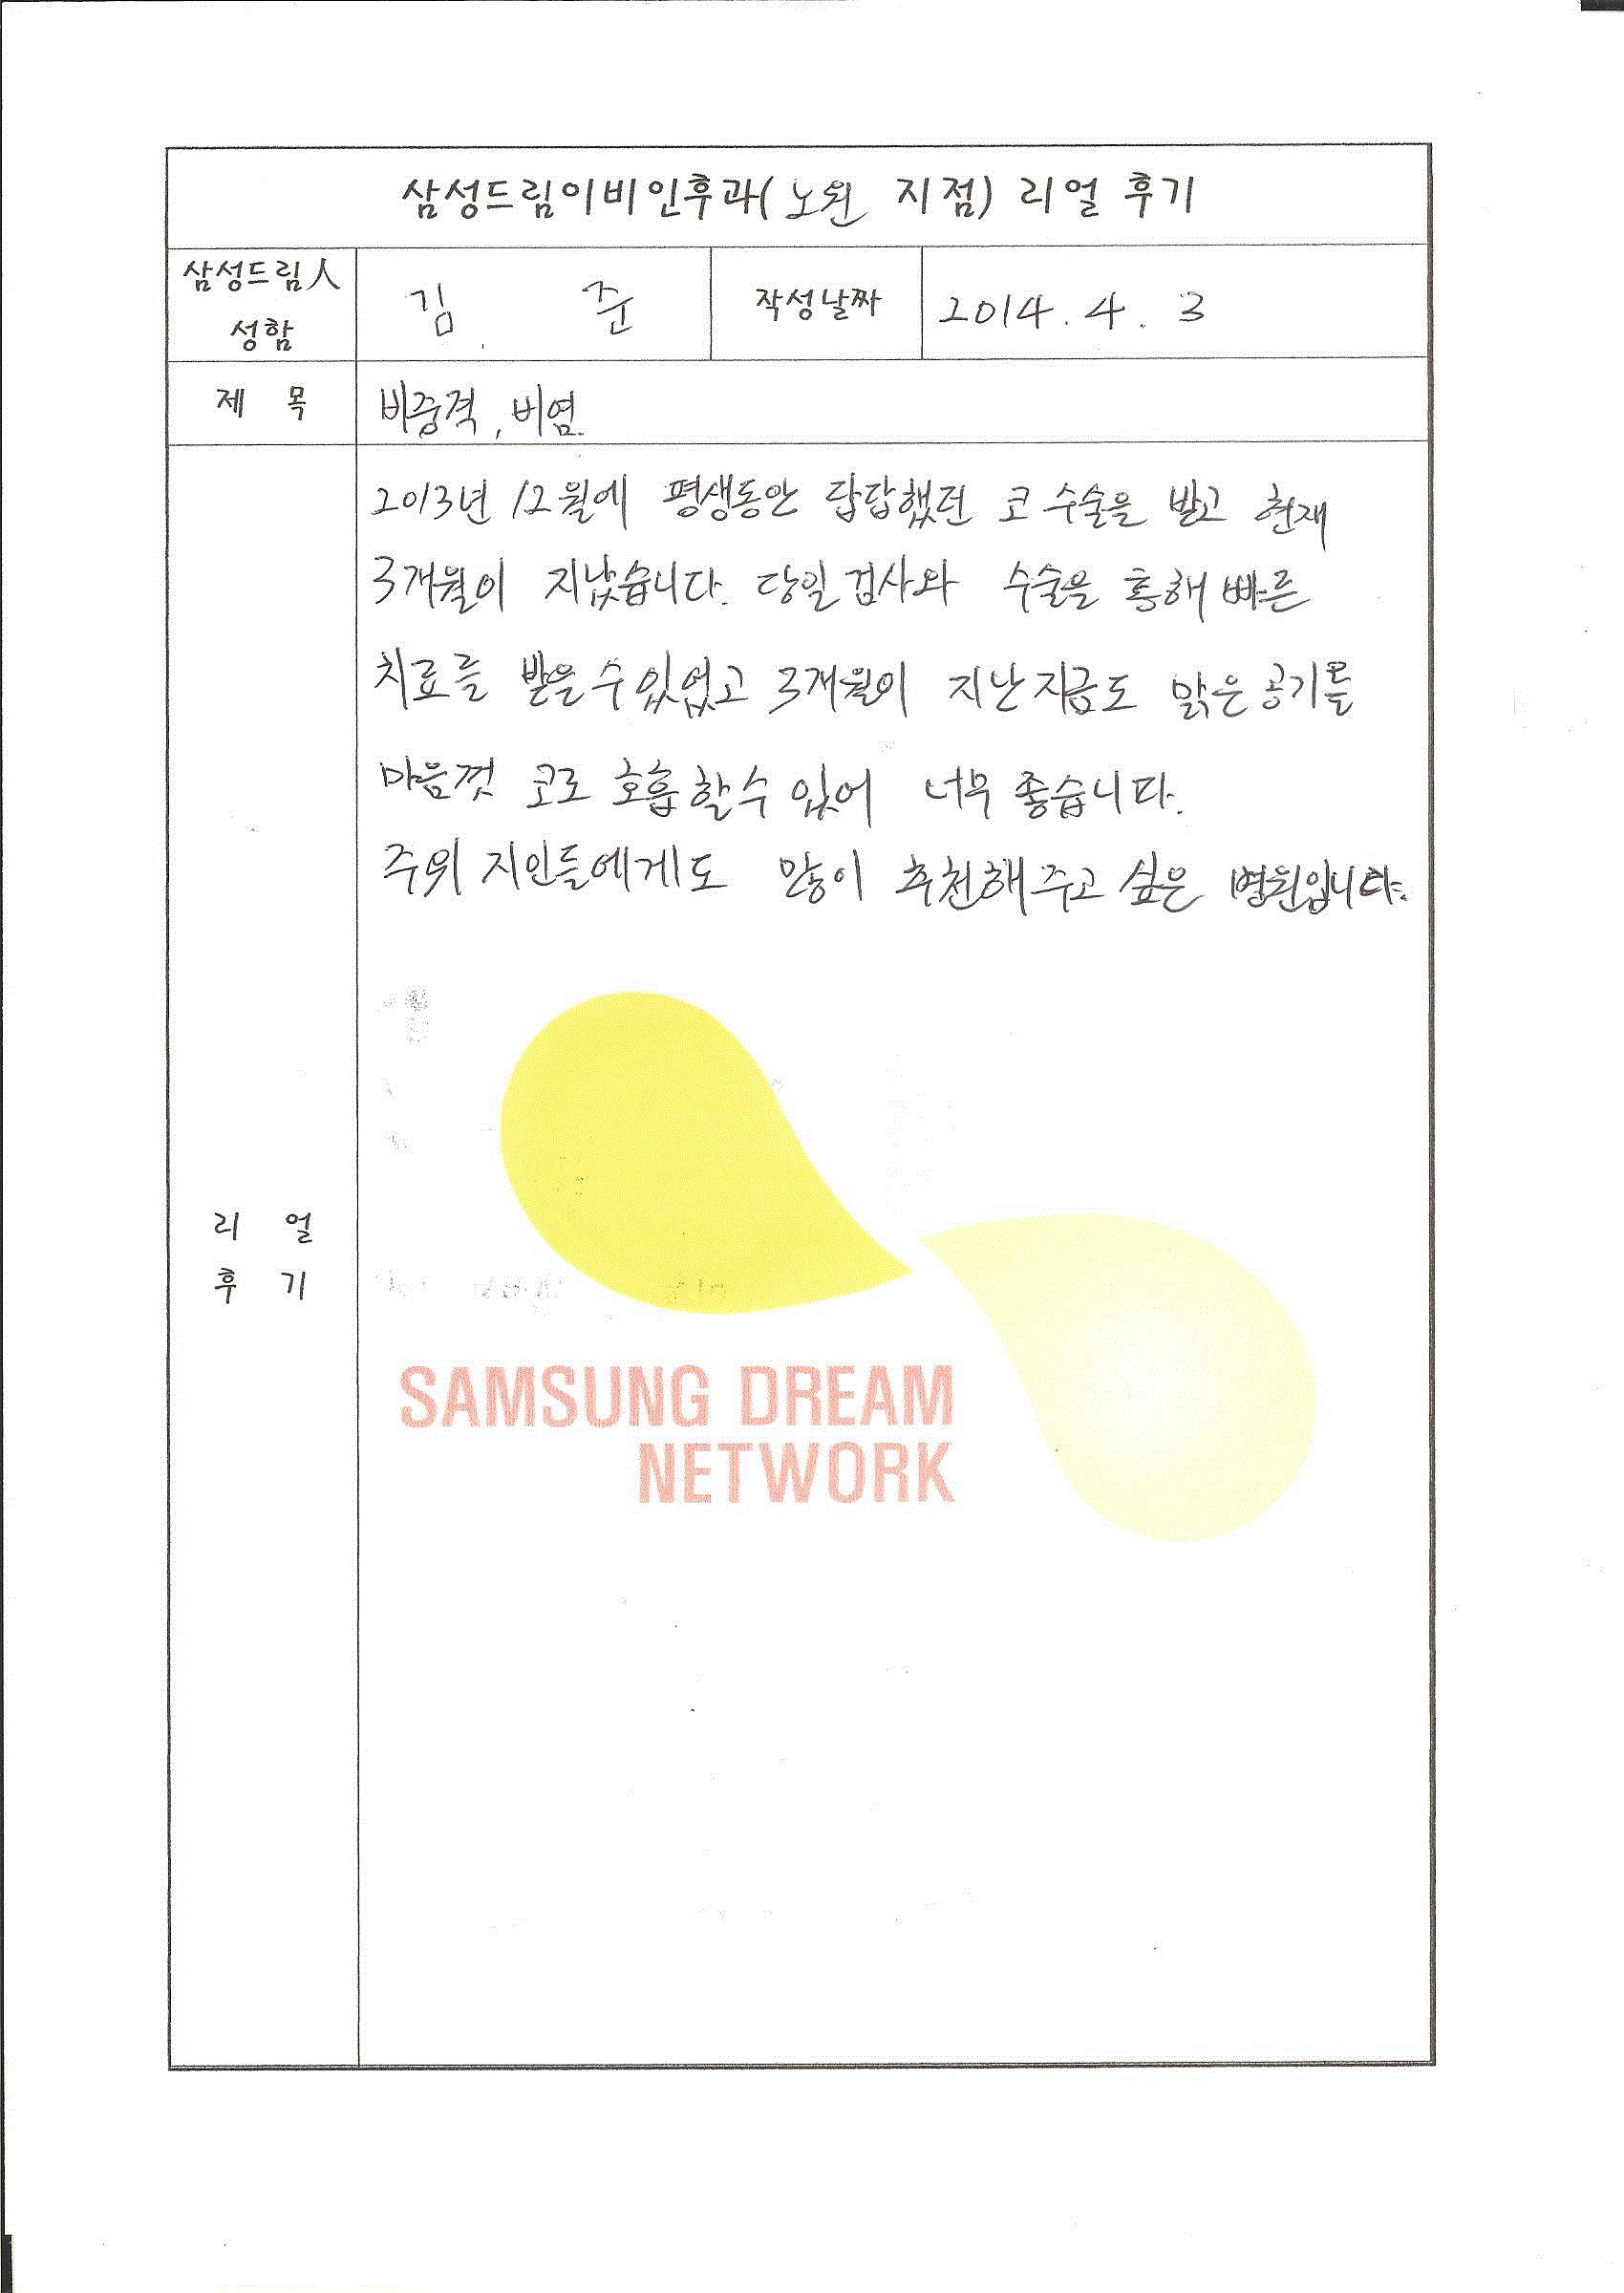 삼성드림이비인후과( 노원 지점) 리얼 후기
삼성드림人
성함
김 준
작성날짜
2014. 4. 3
제 목
비중격, 비염.
2013년 12월에 평생동안 답답했던 코 수술을 받고 현재
3개월이 지났습니다. 당일 검사와 수술을 통해 빠른
치료를 받을 수 있었고 3개월이 지난 지금도 맑은 공기를
마음껏 코로 호흡 할 수 있어 너무 좋습니다.
주위 지인들에게도 많이 추천해 주고 싶은 병원입니다.
리 얼
후 기
SAMSUNG DREAM
NETWORK